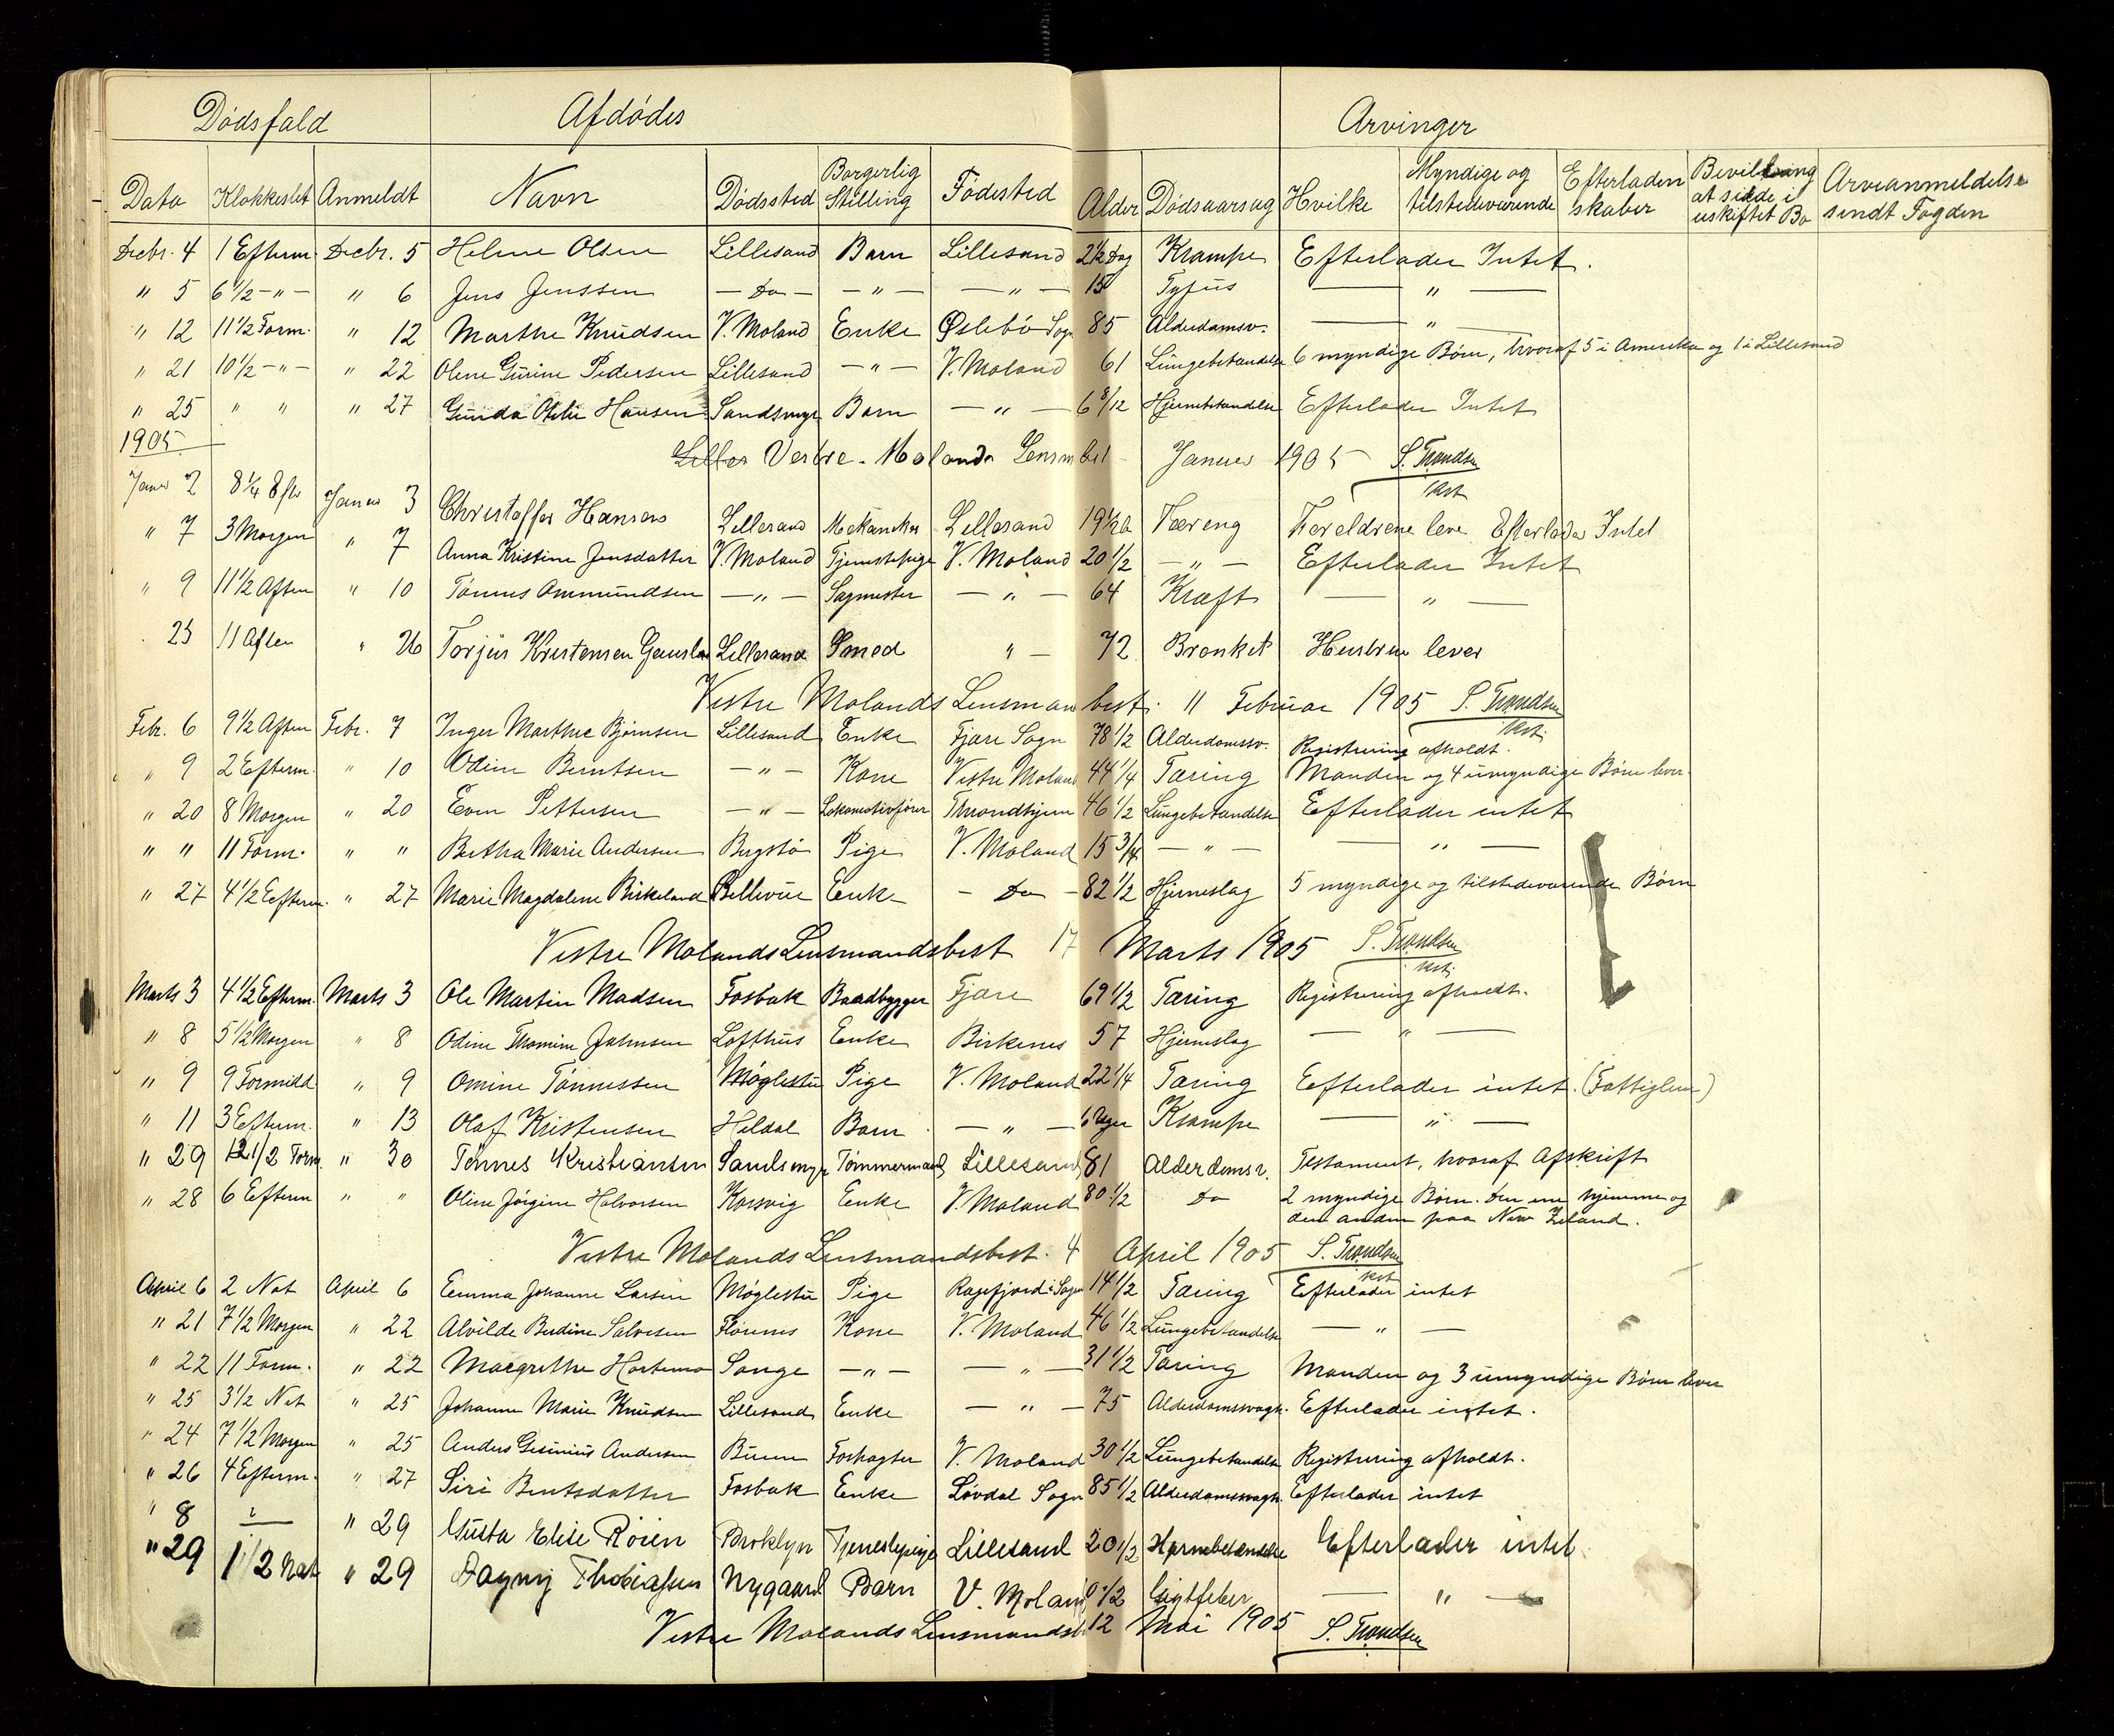 Dödsfald Afdödes Arvinger
Dato Klokkeslet Anmeldt Navn Dödssted Borgerlig Stilling Födested Alder Dödsaarsag Hvilke Myndige og tilstedeværende Efterladenskaber Bevillning at sidde i uskiftet Bo Arveanmeldelse sendt Fogden
Decbr. 4 1 Efterm. Decbr. 5 Helene Olsen Lillesand Barn Lillesand 2 1/2 Dag Krampe Efterlader Intet.
" 5 6 1/2 - " - " 6 Jens Jenssen - Do - - " - - " - 15 Tyfus - " -
" 12 11 1/2 Form. " 12 Marthe Knudsen V. Moland Enke Øslebö Sogn 85 Alderdomsv. - " -
" 21 10 1/2 - " - " 22 Olene Gurine Pedersen Lillesand - " - V. Moland 61 Lungebetændelse 6 myndige Börn, hvoraf 5 i Amerika og 1 i Lillesand
" 25 " " " 27 Gunda Otelie Hansen Sandsmyr Barn - " - 6 8/12 Hjernebetændelse Efterlader Intet
1905
Vestre - Molands Lensm best Januar 1905 S. Trondsen
kst
Januar 2 8 1/4 Eftr Januar 3 Christoffer Hansen Lillesand Mekaniker Lillesand 19 1/2 Tæreng Foreldrene leve Efterlader Intet
" 7 3 Morgen " 7 Anna Kristine Jensdatter V. Moland Tjenestepige V. Moland 20 1/2 - " - Efterlader Intet
" 9 11 1/2 Aften " 10 Tönnes Ommundsen - " - Sagmester - " - 64 Kræft - " -
. 25 11 Aften " 26 Torjus Kristensen Lillesand Smed " - 72 Bronket Hustrue lever
Vestre Molands Lensman best. 11 Februar 1905 S. Trondsen
kst.
Febr. 6 9 1/2 Aften Febr. 7 Inger Marthe Björnsen Lillesand Enke Fjære Sogn 78 1/2 Alderdomssv. Registrering afholdt.
" 9 2 Efterm. " 10 Odine Berntsen - " - Kone Vestre Moland 44 1/4 Tæring Manden og 4 umyndige Börn lever
" 20 8 Morgen " 20 Even Pettersen - " - Lokomotivförer Throndhjem 46 1/2 Lungebetændelse Efterlader intet
" " 11 Form. " " Bertha Marie Andersen Bergstö Pige V. Moland 15 3/4 - " - - " -
" 27 4 1/2 Efterm. " 27 Marie Magdalene Birkeland Bellevue Enke - Do - 82 1/2 Hjerneslag 5 myndige og tilstedeværende Börn
Vestre Molands Lensmandsbest 17 Marts 1905 S. Trondsen
kst.
Marts 3 4 1/2 Efterm. Marts 3 Ole Martin Madsen Fosbæk Baadbygger Fjære 69 1/2 Tæring Registrering afholdt.
" 8 5 1/2 Morgen " 8 Odine Thomine Johnsen Lofthus Enke Birkenes 57 Hjerneslag - " -
" 9 9 Formidd " 9 Omine Tönnessen Möglestu Pige V. Moland 22 1/4 Tæring Efterlader intet. (Fattiglem)
" 11 3 Efterm. " 13 Olaf Kristensen Heldal Barn - " - 6 Uger Krampe - " -
" 29 12 1/2 Form. " 30 Tönnes Kristiansen Sandsmyr Tömmermand Lillesand 81 Alderdomsv. Testament, hvoraf Afskrift
" 28 6 Efterm " " Oline Jörgine Halvorsen Korsvig Enke V. Moland 80 1/2 Do 2 myndige Börn. Den ene hjemme og
den anden paa New Zeland.
Vestre Molands Lensmandsbest. 4 April 1905 S. Trondsen
kst
April 6 2 Nat April 6 Emma Johanne Larsen Möglestu Pige 14 1/2 Tæring Efterlader intet
" 21 7 1/2 Morgen " 22 Alvilde Berdine Salvesen Flörenes Kone V. Moland 46 1/2 Lungebetændelse - " -
" 22 11 Form. " 22 Margrethe Hortemo Sange - " - - " - 31 1/2 Tæring Manden og 3 umyndige Börn lever
" 25 3 1/2 Nat " 25 Johanne Marie Knudsen Lillesand Enke - " - 75 Alderdomssvagh. Efterlader intet.
" 24 7 1/2 Morgen " 25 Anders Gesinius Andersen Forpagter V. Moland 30 1/2 Lungebetændelse Registrering afholdt.
" 26 4 Efterm. " 27 Siri Berntsdatter Fosbæk Enke Lövdal Sogn 85 1/2 Alderdomssvagh. Efterlader intet
" 8 " 29 Gusta Elise Röien Broklyn Tjenestepige Lillesand 20 1/2 Hjernebetændelse Efterlader intet
" 29 1 1/2 Nat " 29 Dagny Thobiassen Nygaard Barn V. Moland 1/2 Gigtfeber - " -
Vestre Molands Lensmandsb 12 Mai 1905 S. Trondsen